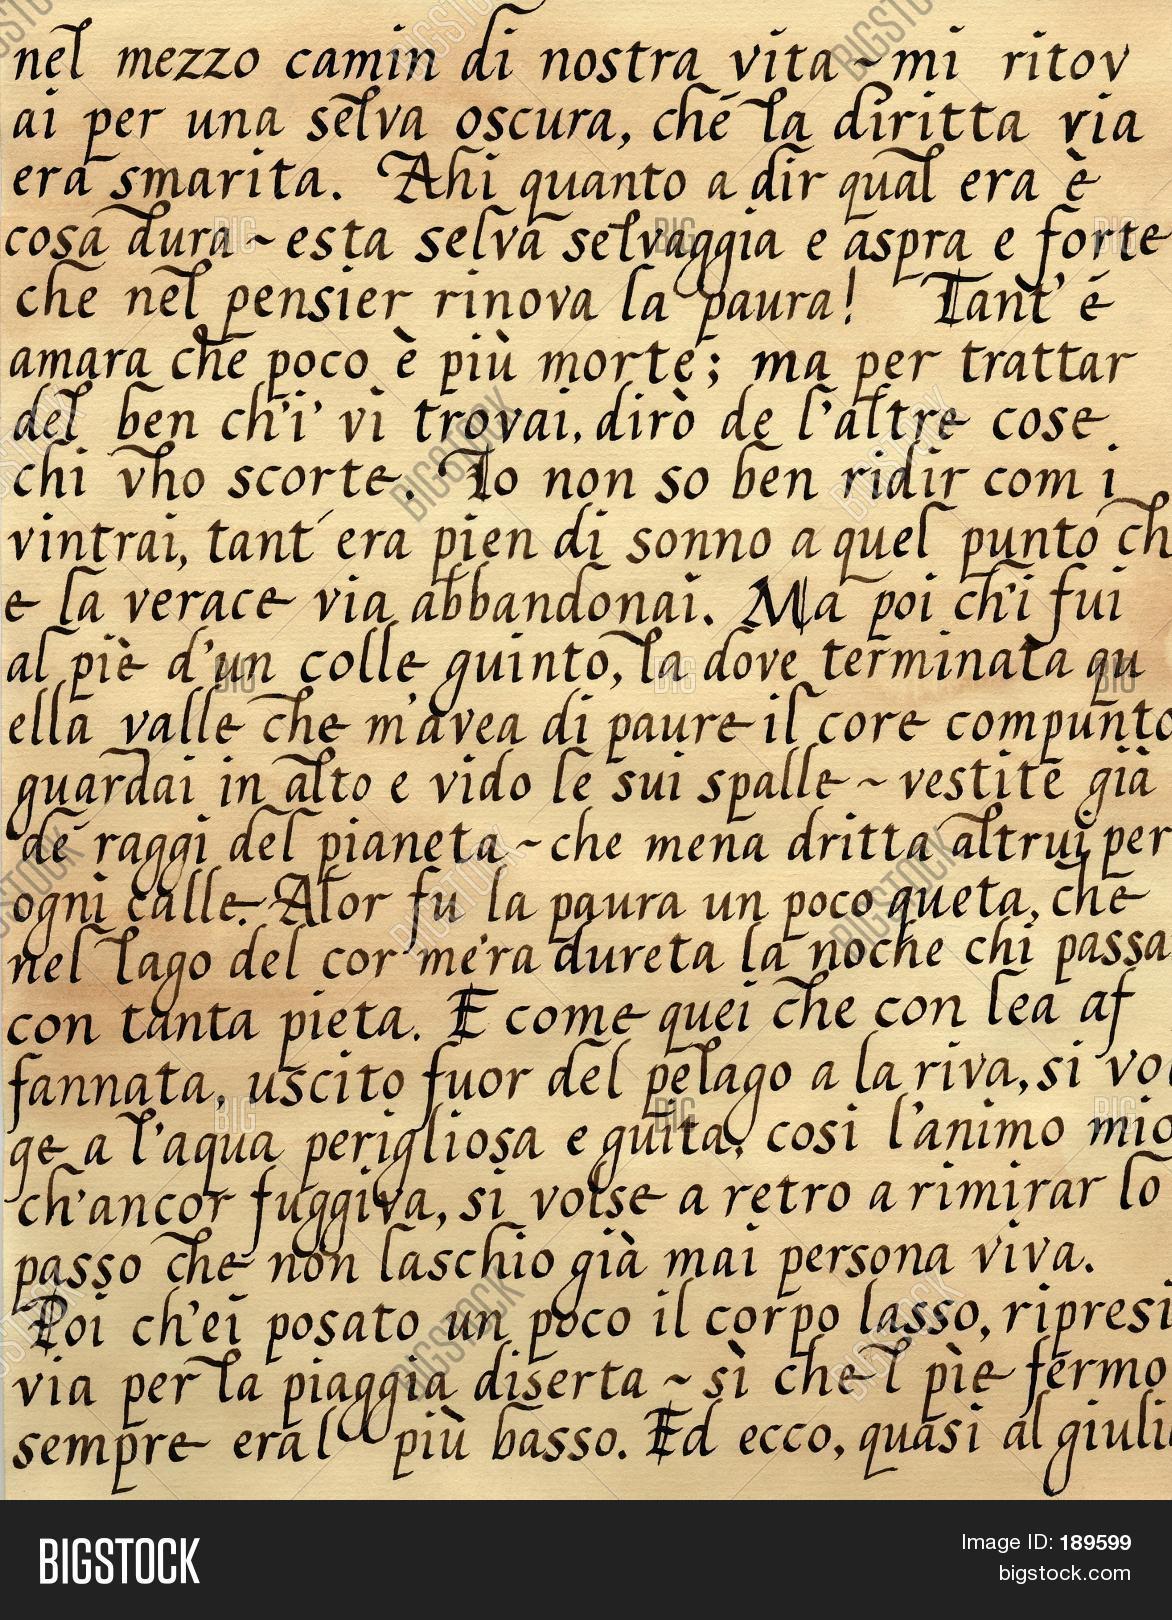 nel mezzo camin di nostra vita ~ mi ritov
ai per una selva oscura, ché la diritta via
era smarita. Ahi quanto a dir qual era è
cosa dura ~ esta selva selvaggia e aspra e forte
che nel pensier rinova la paura! Tant' é
amara che poco è più morte; ma per trattar
del ben ch'i' vi trovai, dirò de l'altre cose
chi vho scorte. Io non so ben ridir com i
vintrai, tant' era pien di sonno a quel punto ch
e la verace via abbandonai. Ma poi ch'i fui
al piè d'un colle guinto, la dove terminata qu
ella valle che m'avea di paure il core compunto
guardai in alto e vido le sui spalle ~ vestite già
de raggi del pianeta ~ che mena dritta altrui per
ogni calle. Alor fu la paura un poco queta, che
nel lago del cor me'ra dureta la noche chi passa
con tanta pieta. E come quei che con lea af
fannata, uscito fuor del pelago a la riva, si vol
ge a l'aqua perigliosa e guita, cosi l'animo mio
ch'ancor fuggiva, si volse a retro a rimirar lo
passo che non laschio già mai persona viva.
Poi ch'ei posato un poco il corpo lasso, ripresi
via per la piaggia diserta ~ sì che l pìe fermo
sempre era l più basso. Ed ecco, quasi al giuli
BIGSTOCK
Image ID: 189599
bigstock.com